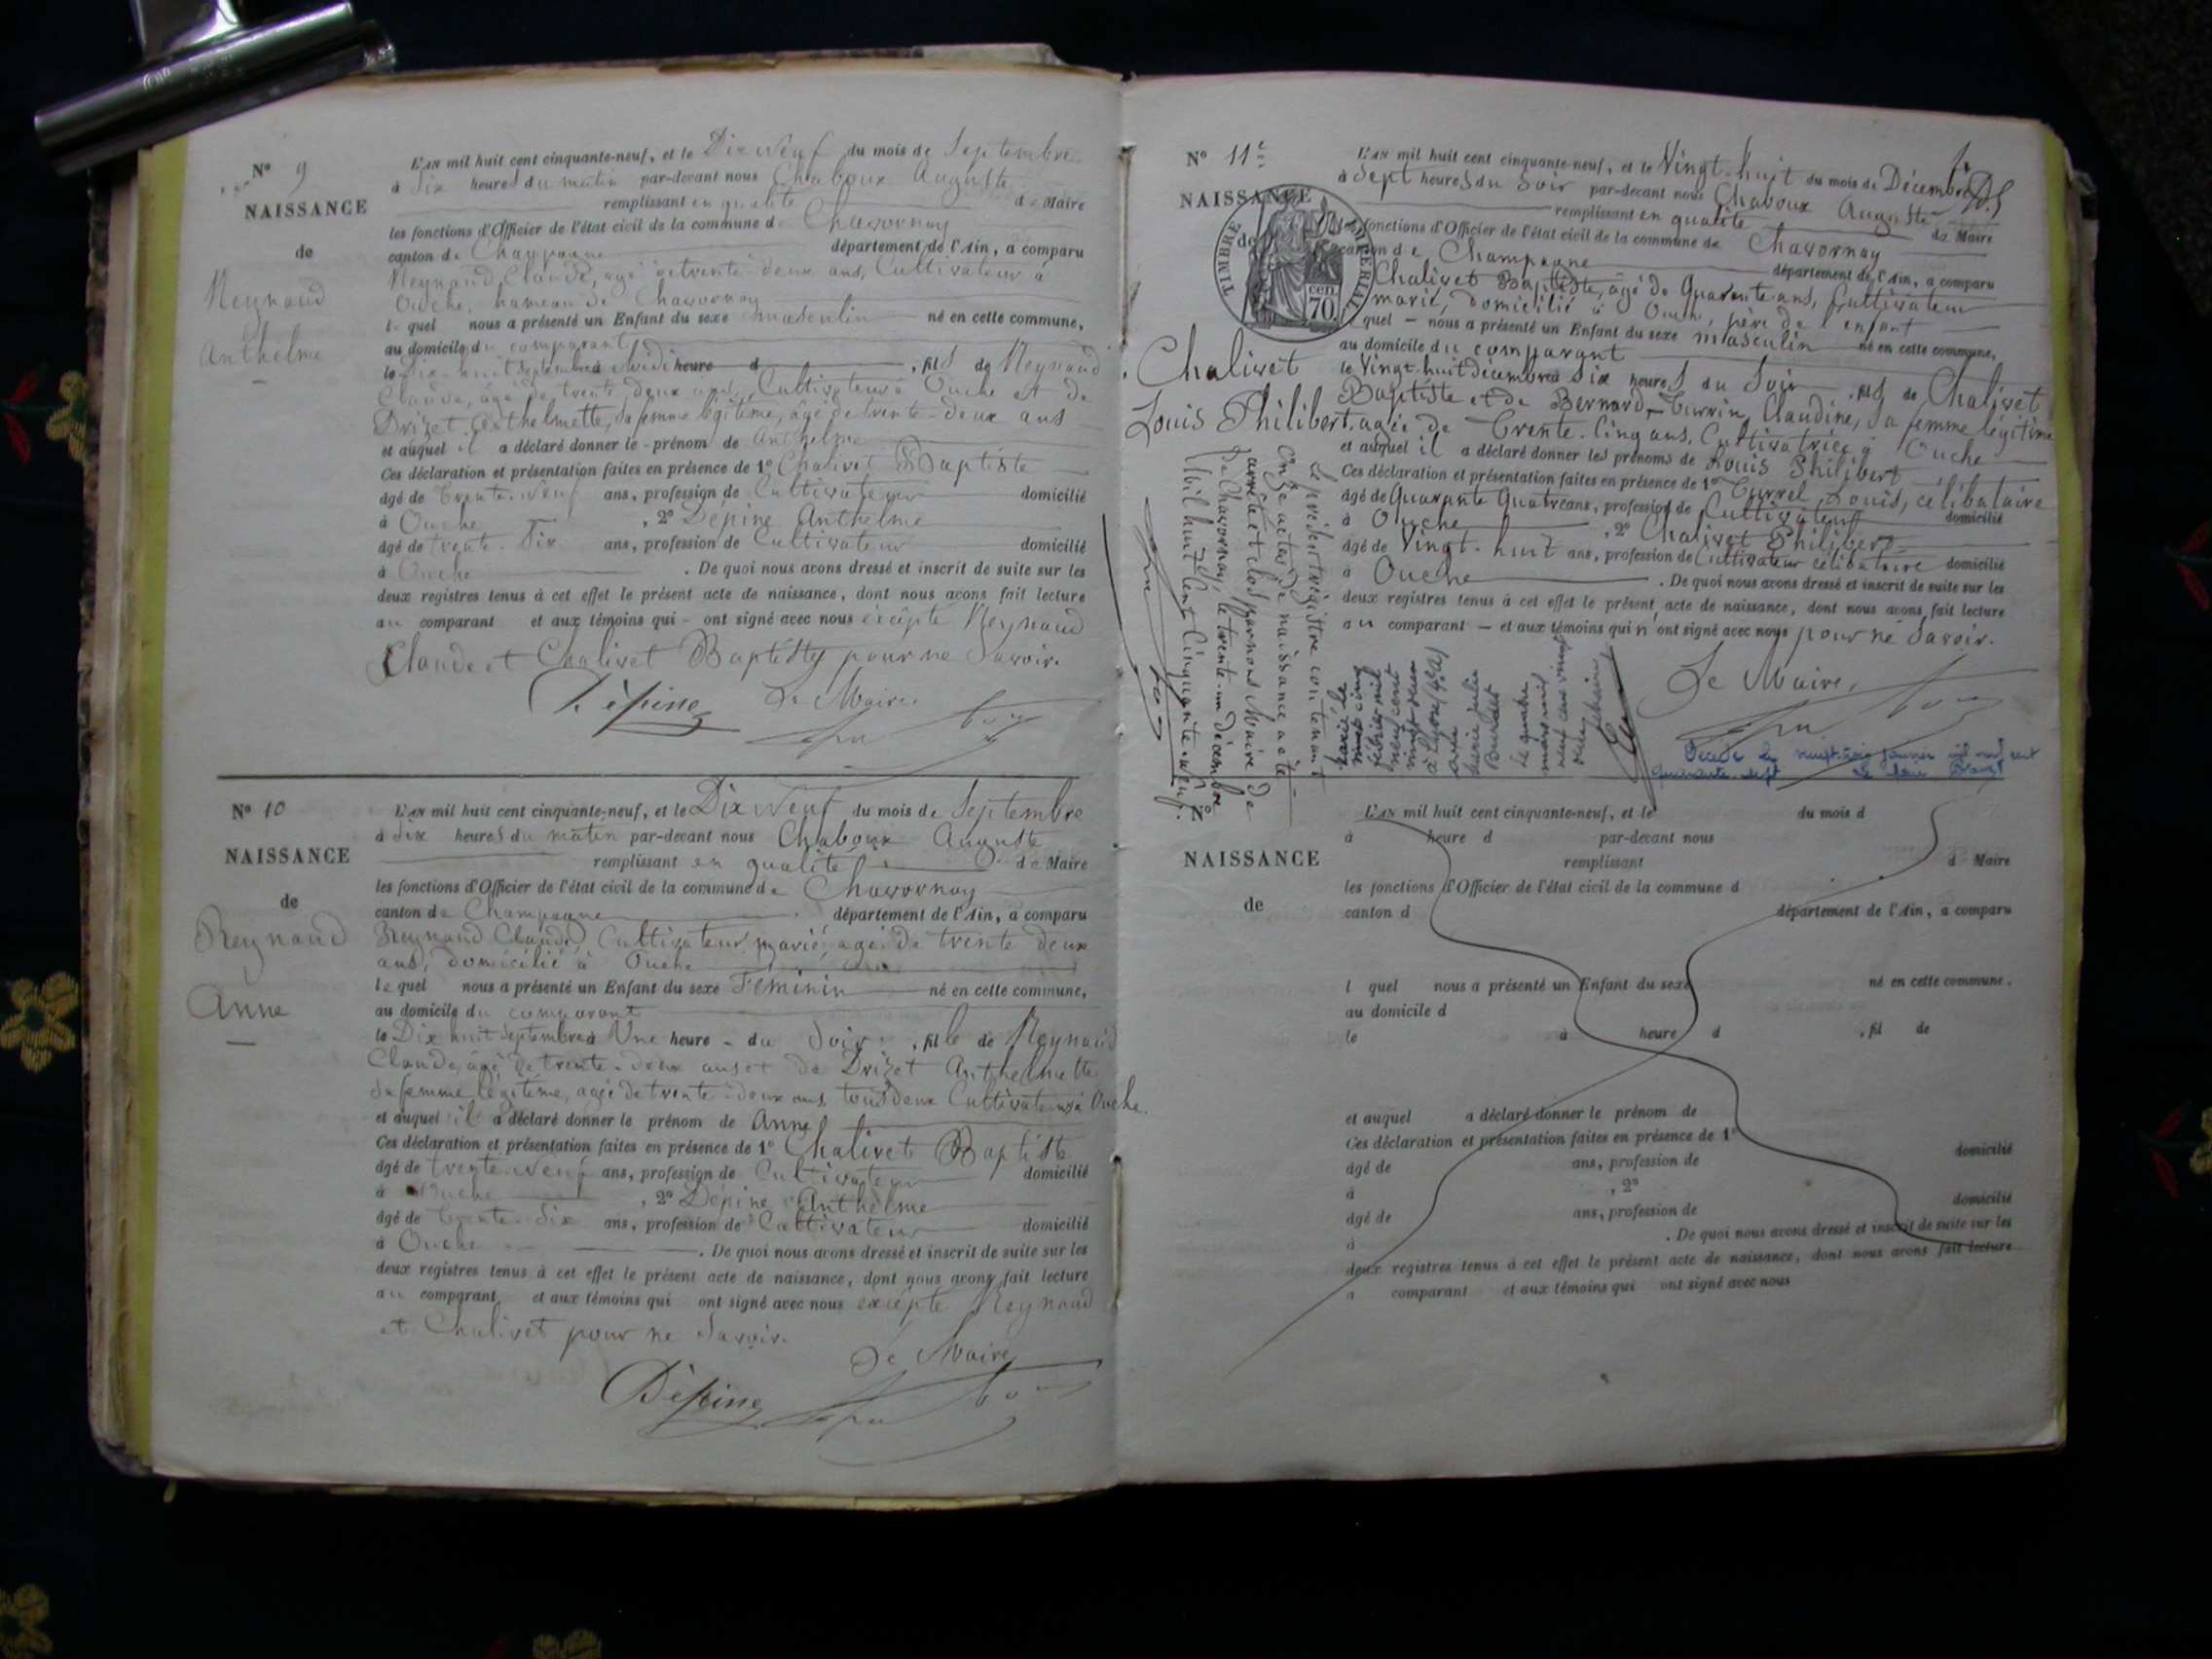 N° 9
NAISSANCE
de
Reynaud
Anthelme
L'AN mil huit cent cinquante-neuf, et le Dix Neuf du mois de Septembre
à Six heures du matin par-devant nous Chaboux Auguste
remplissant en qualité de Maire
les fonctions d'Officier de l'état civil de la commune de Chavornay
canton de Champagne département de l'Ain, a comparu
Reynaud Claude, agé de trente deux ans, Cultivateur à
Ouche, hameau de Chavornay
lequel nous a présenté un Enfant du sexe masculin né en cette commune,
au domicile du comparant
le Dix-huit Septembre à Midi heure d , fils de Reynaud
Claude, âgé de trente deux ans, Cultivateur à Ouche et de
Drizet Anthelmette, sa femme légitime, âgée de trente-deux ans
et auquel il a déclaré donner le prénom de Anthelme
Ces déclaration et présentation faites en présence de 1° Chalivet Baptiste
âgé de trente-neuf ans, profession de Cultivateur domicilié
à Ouche , 2° Dépine Anthelme
âgé de trente-Six ans, profession de Cultivateur domicilié
à Ouche . De quoi nous avons dressé et inscrit de suite sur les
deux registres tenus à cet effet le présent acte de naissance, dont nous avons fait lecture
au comparant et aux témoins qui ont signé avec nous excepte Reynaud
Claude et Chalivet Baptiste pour ne Savoir.
Dépine Le Maire
N° 10
NAISSANCE
de
Reynaud
Anne
L'AN mil huit cent cinquante-neuf, et le Dix Neuf du mois de Septembre
à Six heures du matin par-devant nous Chaboux Auguste
remplissant en qualité de Maire
les fonctions d'Officier de l'état civil de la commune de Chavornay
canton de Champagne département de l'Ain, a comparu
Reynaud Claude, Cultivateur marié, agé de trente deux
ans, domicilié à Ouche
lequel nous a présenté un Enfant du sexe Féminin né en cette commune,
au domicile du comparant
le Dix huit Septembre à Une heure du Soir , fille de Reynaud
Claude, âgé de trente-deux ans et de Drizet Anthelmette
sa femme légitime, agée de trente-deux ans, tous deux Cultivateurs à Ouche.
et auquel il a déclaré donner le prénom de Anne
Ces déclaration et présentation faites en présence de 1° Chalivet Baptiste
âgé de trente-neuf ans, profession de Cultivateur domicilié
à Ouche , 2° Dépine Anthelme
âgé de trente-Six ans, profession de Cultivateur domicilié
à Ouche . De quoi nous avons dressé et inscrit de suite sur les
deux registres tenus à cet effet le présent acte de naissance, dont nous avons fait lecture
au comparant et aux témoins qui ont signé avec nous excepte Reynaud
et Chalivet pour ne Savoir.
Le Maire
Dépine
N° 11e
NAISSANCE
de
TIMBRE IMPERIAL
70 cen
Chalivet
Louis Philibert
L'AN mil huit cent cinquante-neuf, et le Vingt-huit du mois de Décembre
à Sept heures du Soir par-devant nous Chaboux Auguste
remplissant en qualité de Maire
les fonctions d'Officier de l'état civil de la commune de Chavornay
canton de Champagne département de l'Ain, a comparu
Chalivet Baptiste, âgé de Quarante ans, Cultivateur
marié, domicilié à Ouche, père de l'enfant
quel nous a présenté un Enfant du sexe masculin né en cette commune,
au domicile du comparant
le Vingt-huit décembre à Six heures du Soir , fils de Chalivet
Baptiste et de Bernard-Turrin, Claudine, sa femme légitime
agée de Trente-Cinq ans, Cultivatrice à Ouche
et auquel il a déclaré donner les prénoms de Louis Philibert
Ces déclaration et présentation faites en présence de 1° Turrel, Louis, célibataire
âgé de Quarante Quatre ans, profession de Cultivateur domicilié
à Ouche , 2° Chalivet Philibert
âgé de Vingt-huit ans, profession de Cultivateur célibataire domicilié
à Ouche . De quoi nous avons dressé et inscrit de suite sur les
deux registres tenus à cet effet le présent acte de naissance, dont nous avons fait lecture
au comparant et aux témoins qui n'ont signé avec nous pour ne Savoir.
Le Maire,
Le présent registre contenant
Onze actes de naissance a été
arrêté et clos par nous Maire de
de Chavornay, le trente-un Décembre
Mil huit Cent Cinquante-neuf.
Marié le
vingt cinq
février mil
neuf cent
à Lyon
avec
Marie Julie
Le quatre
mars mil
neuf cent vingt
Décédé le vingt-trois janvier mil neuf cent
quarante sept
NAISSANCE
de
L'AN mil huit cent cinquante-neuf, et le du mois d
à heure d par-devant nous
remplissant d Maire
les fonctions d'Officier de l'état civil de la commune d
canton d département de l'Ain, a comparu
l quel nous a présenté un Enfant du sexe né en cette commune,
au domicile d
le à heure d , fil de
et auquel a déclaré donner le prénom de
Ces déclaration et présentation faites en présence de 1°
âgé de ans, profession de domicilié
à , 2°
âgé de ans, profession de domicilié
à . De quoi nous avons dressé et inscrit de suite sur les
deux registres tenus à cet effet le présent acte de naissance, dont nous avons fait lecture
a comparant et aux témoins qui ont signé avec nous